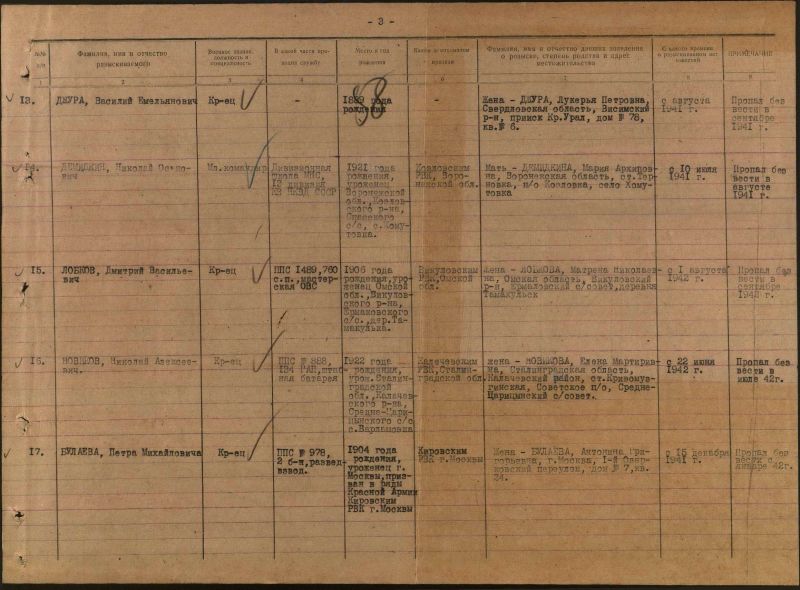 - 3 -
№№ п/п
Фамилия, имя и отчество разыскиваемого
Военное звание, должность и специальность
В какой части проходил службу
Место и год рождения
Каким военкоматом призван
Фамилия, имя и отчество давших заявления о розыске, степень родства и адрес местожительства
С какого времени о разыскиваемом нет известий
ПРИМЕЧАНИЕ
1 2 3 4 5 6 7 8 9
13. ДЖУРА, Василий Емельянович
Кр-ец
-
1899 года
рождения
-
Жена - ДЖУРА, Лукерья Петровна,
Свердловская область, Висимский
р-н, прииск Кр.Урал, дом № 78,
кв.№ 6.
с августа
1941 г.
Пропал без
вести в
сентябре
1941 г.
14. ДЕМИДКИН, Николай
Мл.командир
Дивизионная
школа МНС,
12 дивизия
НКВД СССР
1921 года
рождения,
уроженец
Воронежской
обл., Козлов-
ского р-на,
с/с, с.Хому-
товка.
Козловским
РВК, Воро-
нежской обл.
Мать - ДЕМИДКИНА, Мария Архипов-
на, Воронежская область, ст.Тер-
новка, п/о Козловка, село Хому-
товка
с 10 июля
1941 г.
Пропал без
вести в
августе
1941 г.
15. ЛОБКОВ, Дмитрий Василье-
вич
Кр-ец
ППС 1489,760
с.п.,мастер-
ская ОВС
1906 года
рождения,уро-
женец Омской
обл.,Викулов-
ского р-на,
Ермаковского
с/с.,дер.Та-
макулька.
Викуловским
РВК,Омской
обл.
жена - ЛОБКОВА, Матрена Николаев-
на, Омская область, Викуловский
р-н, Ермаловский с/совет,деревня
Тамакульск
с 1 августа
1942 г.
Пропал без
вести в
сентябре
1942 г.
16. НОВИКОВ, Николай Алексее-
вич.
Кр-ец
ППС № 888,
184 ГАП,штаб-
ная батарея
1922 года
рождения,
урож.Сталин-
градской
обл.,Калачев-
ского р-на,
Средне-Цари-
цынского с/с
с.Варламовка
Калачевским
РВК,Сталин-
градской обл.
жена - НОВИКОВА, Елена Мартирив-
на, Сталинградская область,
Калачевский район, ст.Кривомуз-
гинская, Советское п/о, Средне-
Царицынский с/совет.
с 22 июня
1942 г.
Пропал без
вести в
июле 42г.
17. БУЛАЕВА, Петра Михайловича
Кр-ец
ППС № 978,
2 б-н,развед-
взвод.
1904 года
рождения,
уроженец г.
Москвы,приз-
ван в ряды
Красной Армии
Кировским
РВК г.Москвы
Кировским
РВК г.Москвы
Жена - БУЛАЕВА, Антонина Гри-
горьевна, г.Москва, 1-й Озер-
ковский переулок, дом № 7,кв.
24.
с 15 декабря
1941 г.
Пропал без
вести с
января 42г.